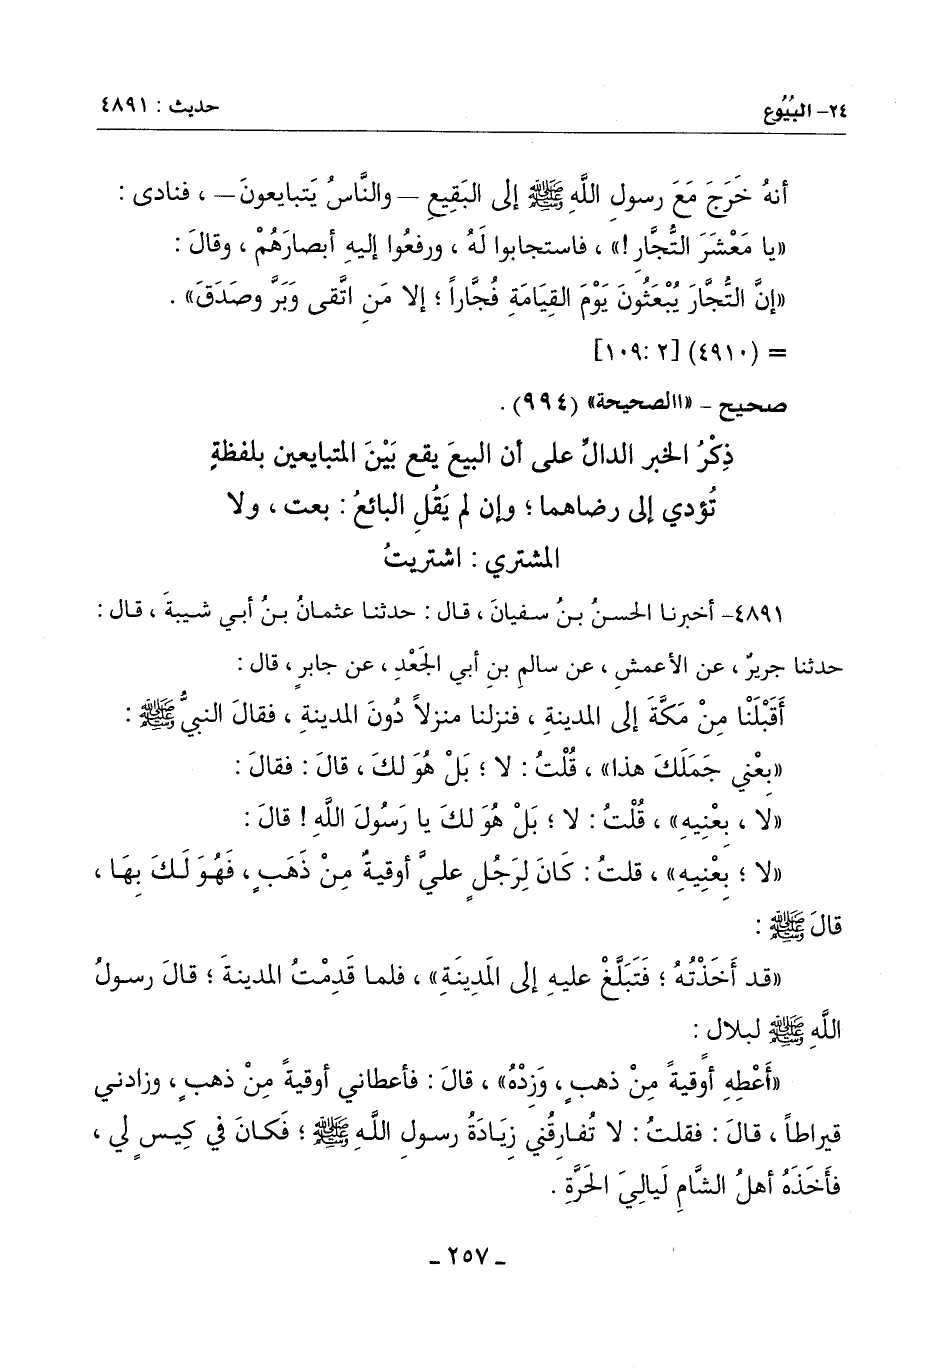 ٢٤- البُيُوع
حديث : ٤٨٩١
أنهُ خَرَجَ مَعَ رسولِ اللَّهِ ﷺ إلى البَقِيعِ — والنَّاسُ يَتبايعونَ— ، فنادى :
«يا مَعْشَرَ التُّجَّارِ !» ، فاستجابوا لَهُ ، ورفعُوا إليهِ أبصارَهُمْ ، وقالَ :
«إنَّ التُّجَّارَ يُبْعَثُونَ يَوْمَ القِيَامَةِ فُجَّاراً ؛ إلا مَنِ اتَّقى وَبَرَّ وصَدَقَ» .
= (٤٩١٠) [٢ :١٠٩]
صحيح - «االصحيحة» (٩٩٤) .
ذِكْرُ الخبر الدالِّ على أن البيعَ يقع بَيْنَ المتبايعين بلفظةٍ
تُؤدي إلى رضاهما ؛ وإن لم يَقُلِ البائعُ : بعت ، ولا
المشتري : اشتريتُ
٤٨٩١- أخبرنا الحسنُ بـنُ سفيانَ ، قال : حدثنـا عثمـانُ بـنُ أبـي شـيبةَ ، قال :
حدثنا جريرٌ ، عن الأعمشِ ، عن سالمِ بنِ أبي الجَعْدِ ، عن جابرٍ ، قال :
أَقبَلْنا مِنْ مَكَّةَ إلى المدينةِ ، فنزلنا منزلاً دُونَ المدينةِ ، فقالَ النبيُّ ﷺ :
«بِعْني جَمَلَكَ هذا» ، قُلْتُ : لا ؛ بَلْ هُوَ لكَ ، قالَ : فقالَ :
«لا ، بِعْنِيهِ» ، قُلْتُ : لا ؛ بَلْ هُوَ لكَ يا رَسُولَ اللَّهِ ! قالَ :
«لا ؛ بِعْنِيهِ» ، قلتُ : كَانَ لِرَجُلٍ عليَّ أوقيةٌ مِنْ ذَهَبٍ ، فَهُوَ لَكَ بِهَا ،
قالَ ﷺ :
«قد أَخَذْتُهُ ؛ فَتَبَلَّغْ عليهِ إلى المَدِينَةِ» ، فلما قَدِمْتُ المدينةَ ؛ قالَ رسولُ
اللَّهِ ﷺ لبلال :
«أَعْطِهِ أوقيةً مِنْ ذهبٍ ، وَزِدْهُ» ، قالَ : فأعطاني أوقيةً مِنْ ذهبٍ ، وزادني
قيراطاً ، قالَ : فقلتُ : لا تُفارِقُني زِيَادَةُ رسولِ اللهِ ﷺ ؛ فَكـانَ في كِيسٍ لي ،
فأَخَذَهُ أهلُ الشَّامِ لَيالِيَ الحَرَّةِ .
- ٢٥٧ -